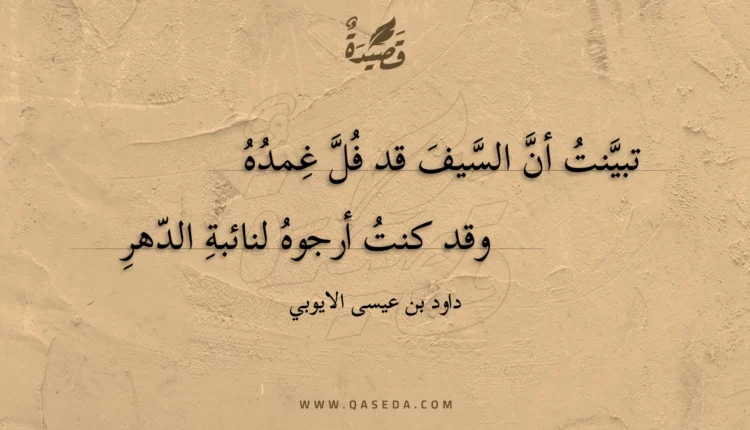 قَصِيدَةٌ
تبيَّنتُ أنَّ السَّيفَ قد فُلَّ غِمدُهُ
وقد كنتُ أرجوهُ لنائبةِ الدّهرِ
داود بن عيسى الايوبي
WWW.QASEDA.COM